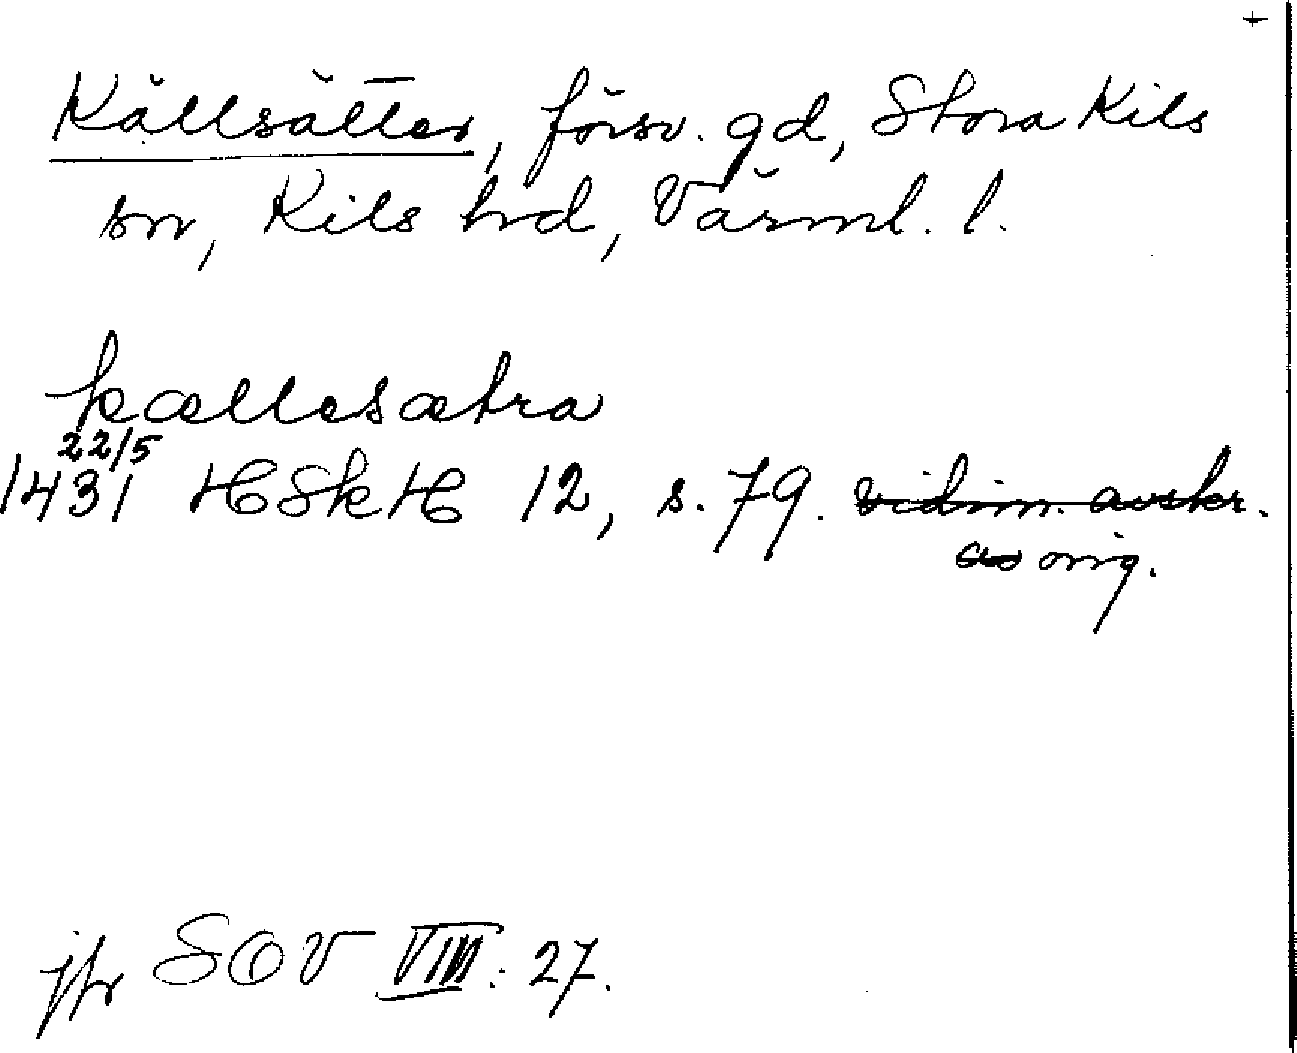 +
Källsätter, försv. gd, Stora Kils
sn, Kils hd, Värml. l.
kællesætra
22/5
1431 HSkH 12, s. 79. vidim. avskr.
av orig.
jfr SOV VIII: 27.